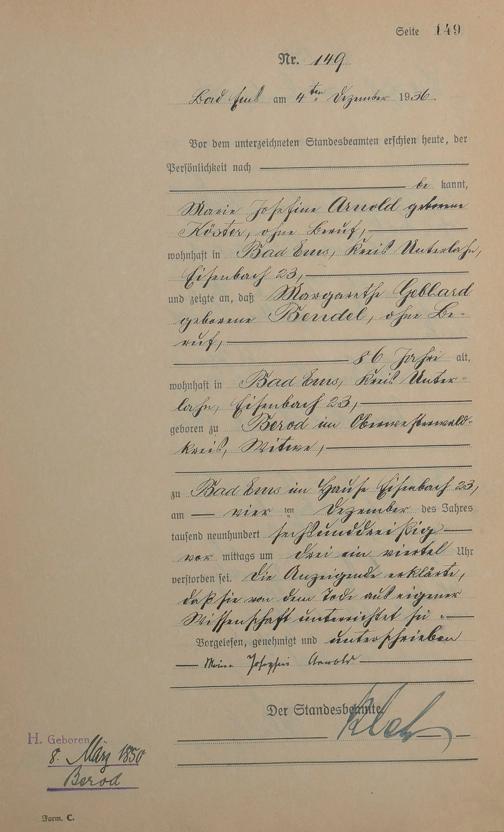 Seite 149
Nr. 149
Bad Ems am 4ten Dezember 1936.
Vor dem unterzeichneten Standesbeamten erschien heute, der
Persönlichkeit nach
be kannt,
Marie Josefine Arnold geborene
Köster, ohne Beruf,
wohnhaft in Bad Ems, Kreis Unterlahn,
Eisenbach 23,
und zeigte an, daß Margarethe Gebhard
geborene Bendel, ohne Be-
ruf,
86 Jahre alt,
wohnhaft in Bad Ems, Kreis Unter-
lahn, Eisenbach 23,
geboren zu Berod im Oberwesterwald-
kreis, Witwe,
zu Bad Ems im Hause Eisenbach 23,
am vier ten Dezember des Jahres
tausend neunhundert sechsunddreißig
vor mittags um drei ein viertel Uhr
verstorben sei. Die Anzeigende erklärte,
daß sie von dem Tode aus eigener
Wissenschaft unterrichtet sei.
Vorgelesen, genehmigt und unterschrieben
Marie Josefine Arnold
Der Standesbeamte.
H. Geboren
8. März 1850
Berod
Form. C.